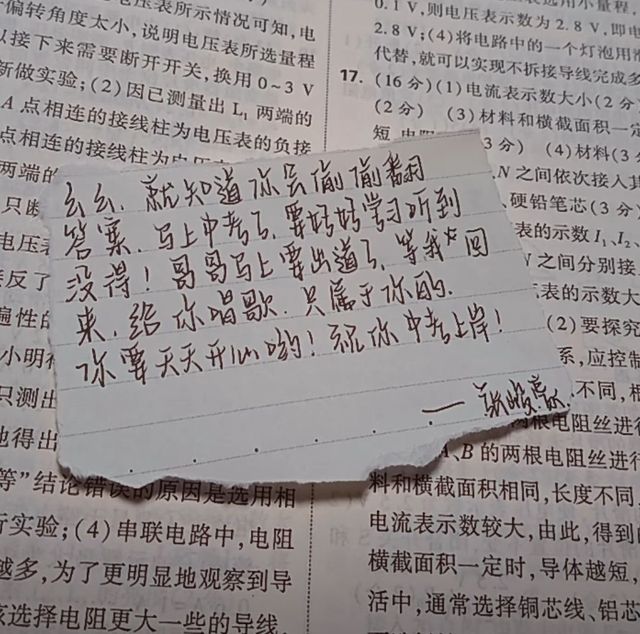 电压表所示情况可知，电
偏转角度太小，说明电压表所选量程
以接下来需要断开开关，换用0～3 V
新做实验；(2)因已测量出L₁两端的
A点相连的接线柱为电压表的负接
点相连的接线柱为电压表
两端的
只断
电压表
接反了
遍性的
小明
只测出
他得出
等”结论错误的原因是选用相
行实验；(4)串联电路中，电阻
越多，为了更明显地观察到导
该选择电阻更大一些的导线
么么，就知道你会偷偷翻
答案，马上中考了，要好好学习听到
没得！哥哥马上要出道了，等我回
来，给你唱歌，只属于你的，
你要天天开心哟！祝你中考上岸！
0.1 V，则电压表示数为2.8 V，即电
2.8 V；(4)将电路中的一个灯泡用滑
代替，就可以实现不拆接导线完成多
17.(16分)(1)电流表示数大小(2分
(2分) (3)材料和横截面积一定
短，电阻 3分) (4)材料(3分
N之间依次接入
硬铅笔芯(3分)
表的示数I₁、I₂
N之间分别接
表的示数大
(2)要探究
系，应控制
不同，根
两根电阻丝进行
A、B的两根电阻丝进行
料和横截面积相同，长度不同
电流表示数较大，由此，得到的
横截面积一定时，导体越短，
活中，通常选择铜芯线、铝芯